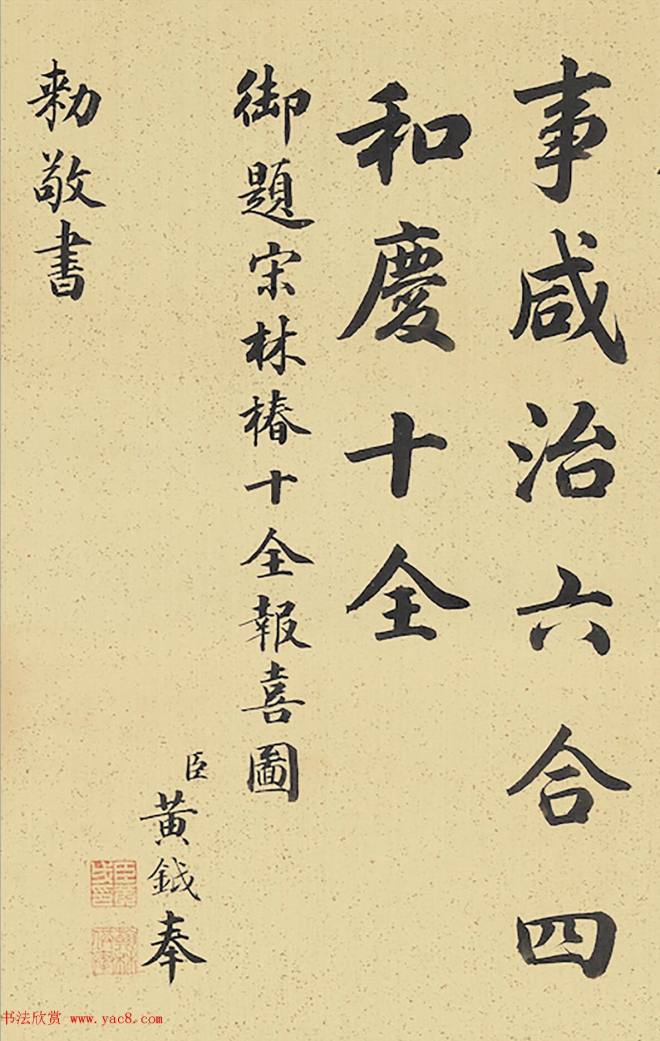 事咸治六合四
和慶十全
御題宋林椿十全報喜圖
臣黃鉞奉
勅敬書
书法欣赏 www.yac8.com